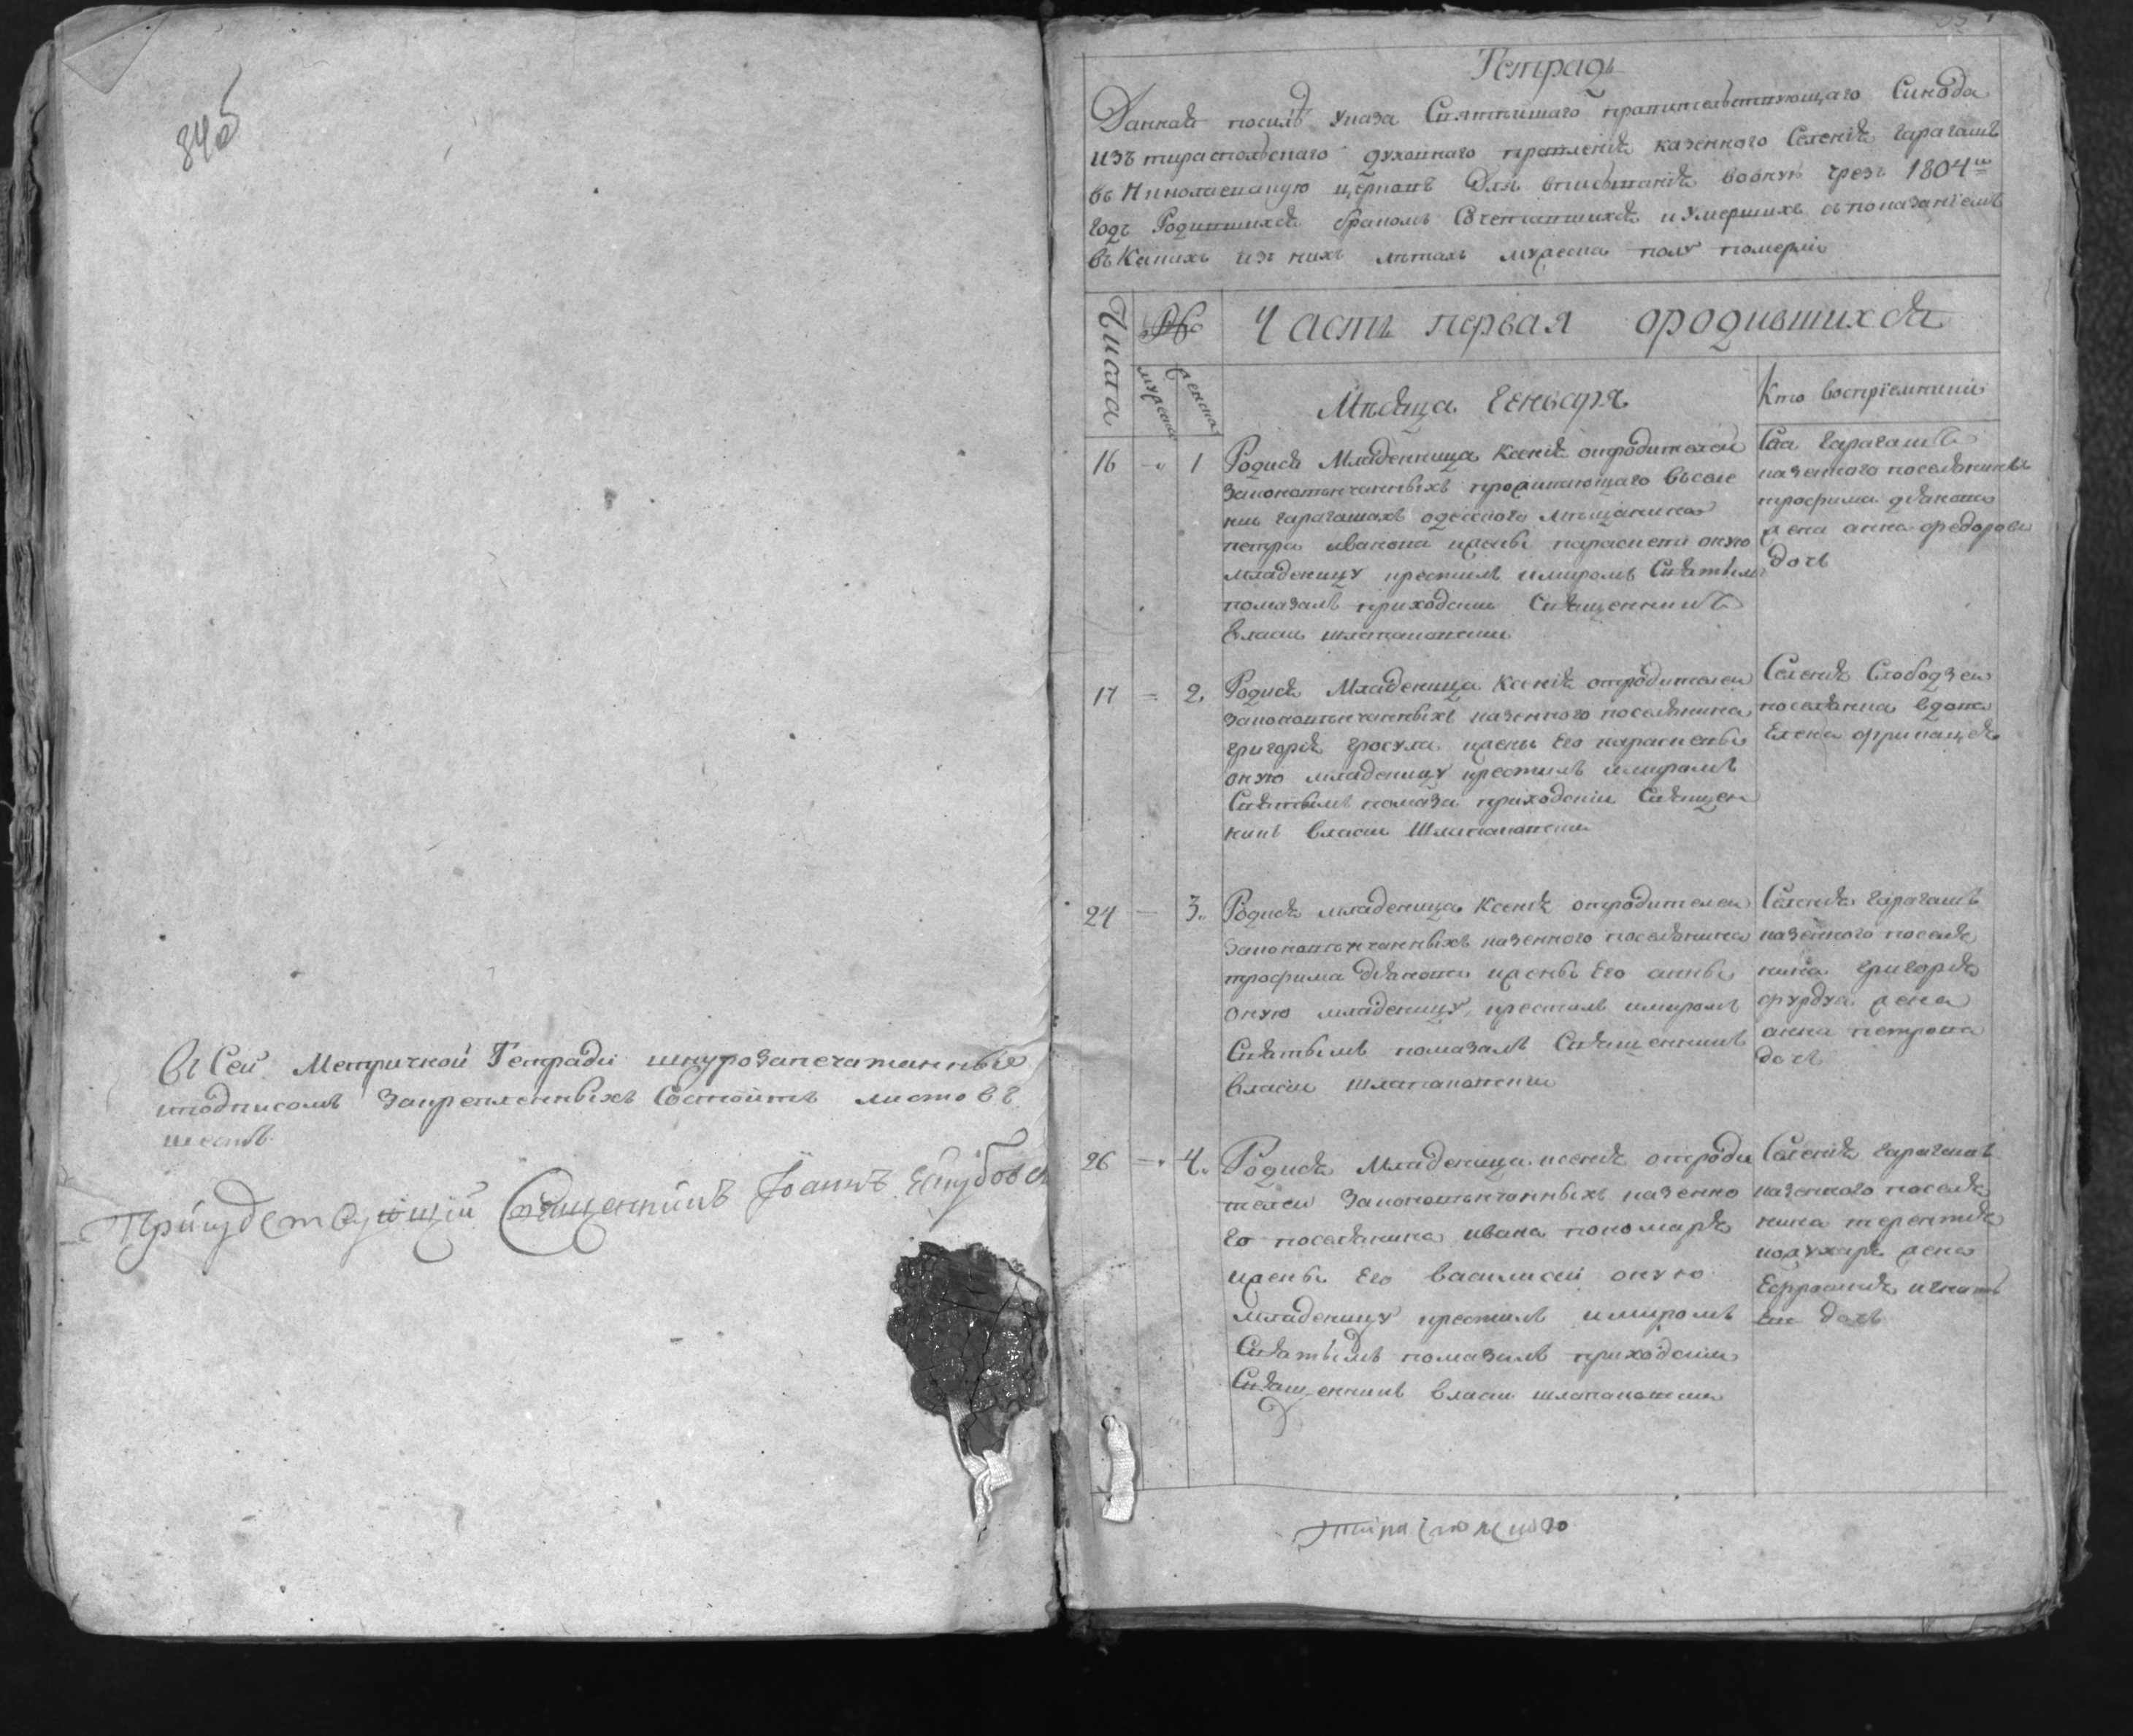 84об
Въ Сей Метричной Тетради шнурозапечатанные
иподписомъ Закрепленныхъ Состоитъ листовъ
шесть.
Присудствующий Священникъ Iоаннъ
Тетрадь
Данная посилѣ указа Святѣйшаго правительствующаго Синода
изъ тираспольскаго духовнаго правления казенного Селения Карагашъ
въ Николаевскую церковь для вписывания во оную чрезъ 1804й
годъ Родившихся бракомъ Сочетавшихся и Умершихъ съ показанiемъ
въ Какихъ изъ нихъ лѣтахъ мужеска полу померли
Числа
Часть первая ородившихся
мужеска
женска
Мѣсяца Генваря
Кто воспрiемники
16 - 1 Родися Младенница Ксения отродителей
законовѣнчанныхъ проживающаго въселе
нии карагашахъ одесского мѣщанина
петра иванова ижены параскеви оную
младеницу крестилъ имиромъ Святымъ
помазалъ приходский Священникъ
власий шлапаковский
Сла Карагашъ
казенного поселянина
трофима дьякова
жена анна федорова
дочь
17 - 2. Родися Младеница Ксения отродителей
законовѣнчанныхъ казенного поселянина
григория гросула ижены Его параскевы
оную младеницу крестилъ имиромъ
Святымъ помаза приходский Священ
никъ власий Шлапаковский
Селения Слободзеи
поселянка вдова
Елена
24 - 3. Родися младеница Ксения отродителей
законовѣнчанныхъ казенного поселянина
трофима дьякова ижены Его анны
оную младеницу крестилъ имиромъ
Святымъ помазалъ Священникъ
власий шлапаковский
Селения Карагашъ
казенного поселя
нина григория
фурдуя жена
анна петрова
дочь
26 - 4. Родися Младеница ксения отроди
телей Законовѣнчанныхъ казенно
го поселянина ивана пономаря
ижены Его василисии оную
младеницу крестилъ имиромъ
Святымъ помазалъ приходский
Священникъ власий шлапаковский
Селения Карагашъ
казенного поселя
нина терентия
жена
Ефросиния игнатъ
ева дочь
Тираспольского